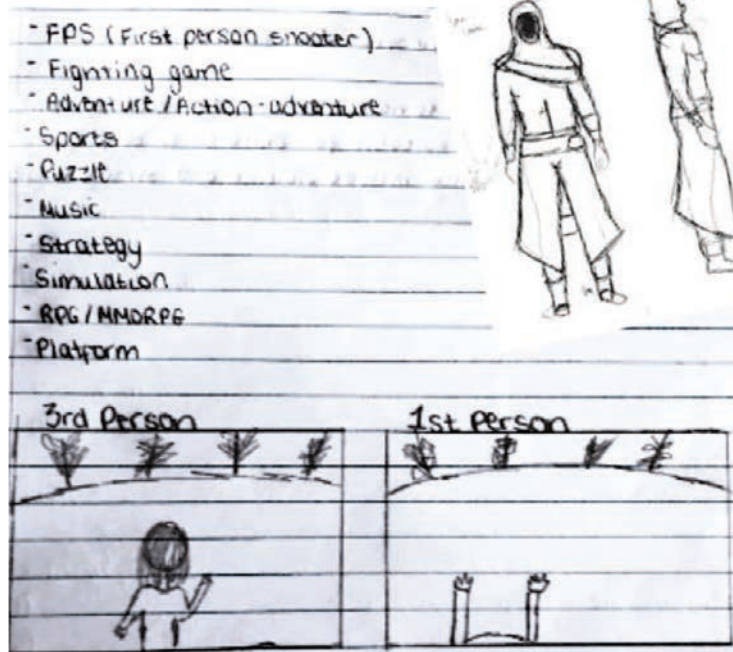 - FPS (First person shooter)
- Fighting game
- Adventure / Action-adventure
- Sports
- Puzzle
- Music
- Strategy
- Simulation
- RPG / MMORPG
- Platform
3rd Person
1st Person